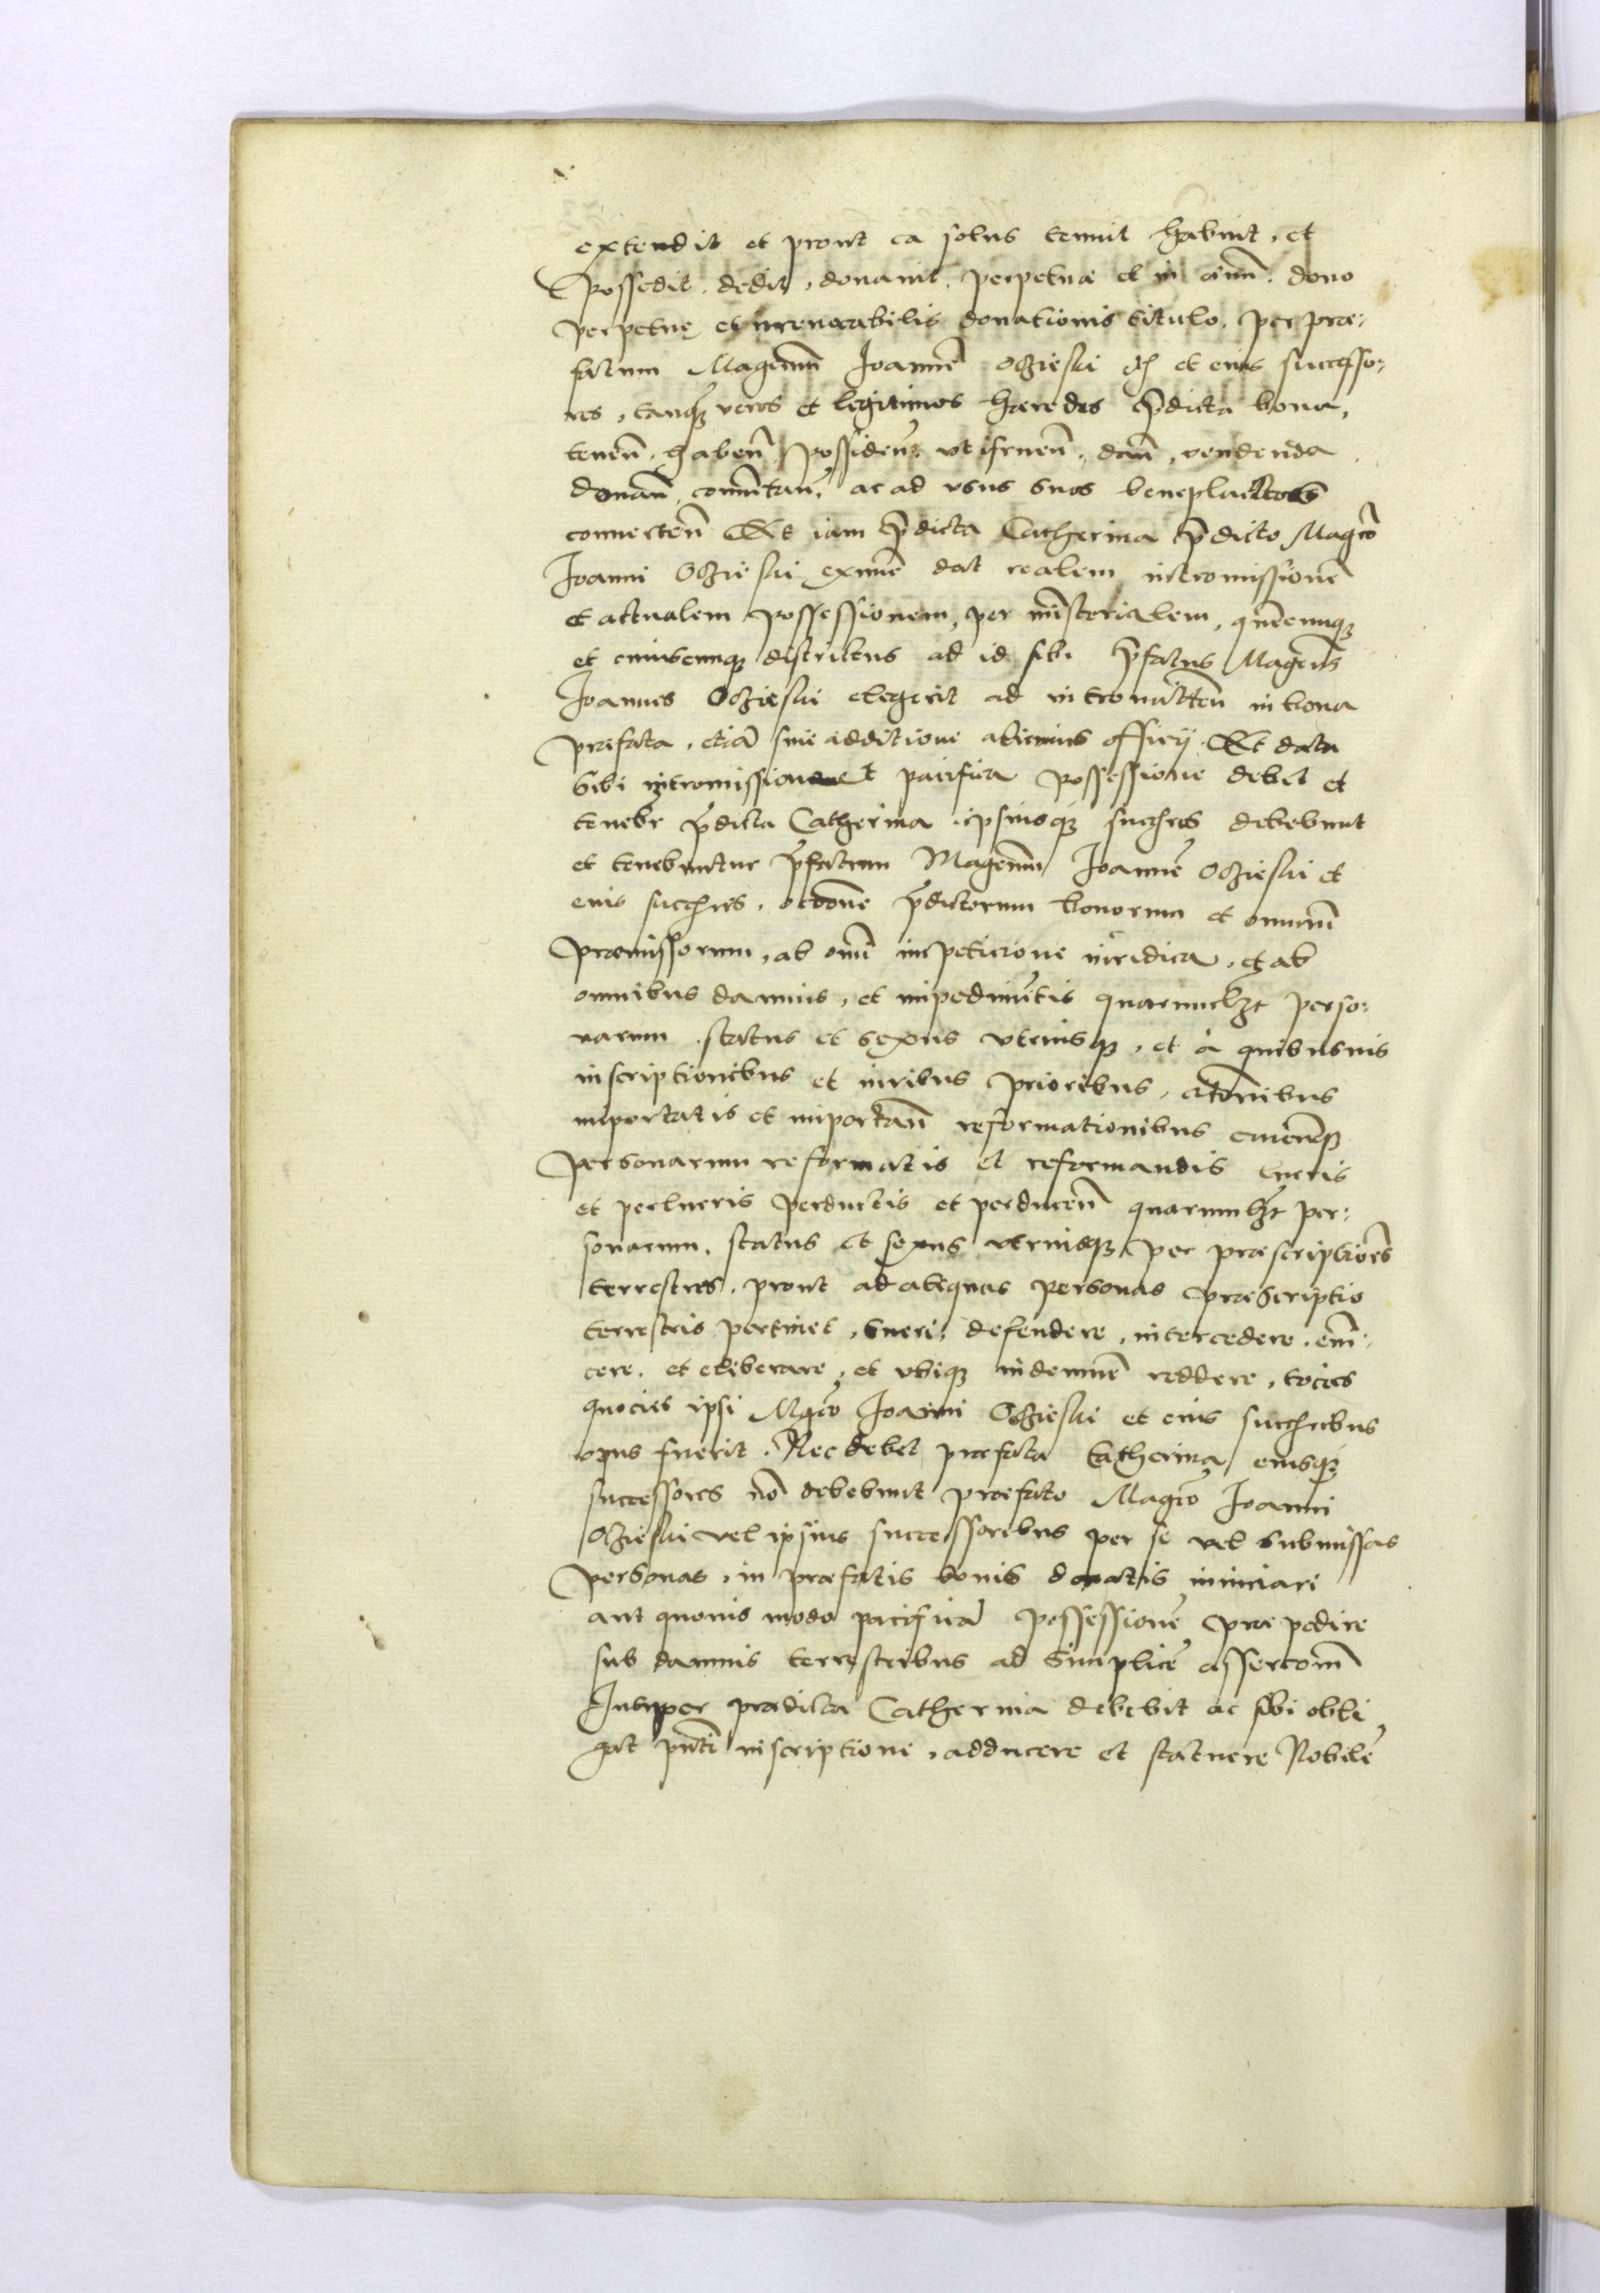 extendit et prout ea solus tenuit habuit, et
possedit. dedit, donauit, perpetuae et in aeuum. dono
perpetuę et irreuocabilis donationis titulo. per prae:
fatum Magcum̄ Joannē Oczieski et eius successo:
res, tanq̃ veros et legitimos haeredes p̄dicta bona,
tenen̄. haben̄ possiden̄. vtifruen̄. dan̄, vendenda
donan̄ comutan̄. ac ad vsus suos beneplacitos
conuerten̄ Et iam p̄dicta Catherina p̄dicto Magco
Joanni Oczieski exnunc dat realem intromissionē
et actualem possessionem, per mīsterialem, quēcunq
et cuiuscunq districtus ad id sibi p̄fatus Magcus
Joannes Oczieski elegerit ad intromitten̄ in bona
praefata, etiā sine additione alicuius officij Et data
sibi intromissione et pacifica possessione debet et
tenebr p̄dicta Catherina ipsiusq succres debebunt
et tenebuntur p̄fatum Magcum̄ Joannē Oczieski et
eius succres. occōne p̄dictorum bonorum et omniū
praemissorum, ab omī impeticione iuridica, et ab
omnibus damnis, et impedimētis quarumlzt perso:
narum status et sexus vtriusq, et à quibusuis
inscriptionibus et iuribus prioribus, actōnibus
importatis et importan̄ reformationibus
personarum reformatis et reformandis lucris
et perlucris perductis et perducen̄ quarumlzt per:
sonarum, status et sexus vtriusq per praescriptiōes
terrestres. prout ad aliquas personas praescriptio
terrestris pertinet, tueri, defendere, intercedere. euī:
cere. et eliberare, et vbiq indemnē reddere, tocies
quocies ipsi Mgco Joanni Oczieski et eius succribus
opus fuerit. Nec debet praefata Catherina eiusq
successores nō debebunt praefato Magco Joanni
Oczieski vel ipsius successoribus per se vel submissas
personas, in praefatis bonis donatis iniuriari
aut quouis modo pacificā possessionē prae pedire
sub damnis terrestribus ad simplicē assercom̄
Insuper praedicta Catherina debebit ac sibi obli
gat pn̄ti inscriptione, adducere et statuere Nobilē